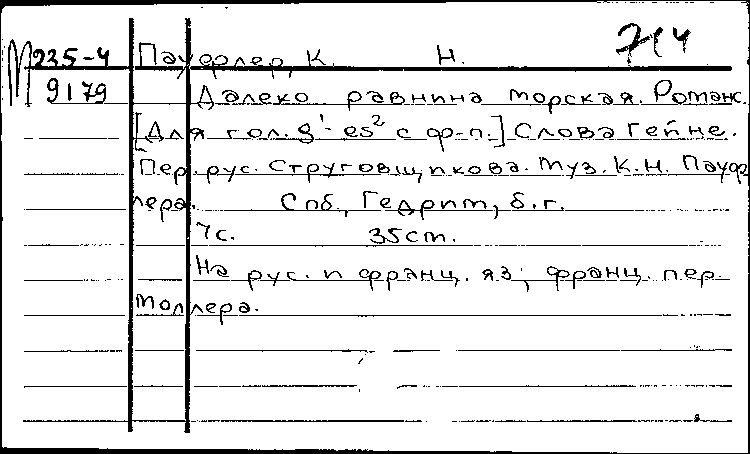 М 235-4 Пауфлер, К. Н. 714
9179 Далеко равнина морская. Романс.
[Для гол. g¹- es² с ф-п.] Слова Гейне.
Пер. рус. Струговщикова. Муз. К. Н. Пауф
лера. Спб., Гедрит, б. г.
7с. 35cm.
На рус. и франц. яз; франц. пер.
Моллера.